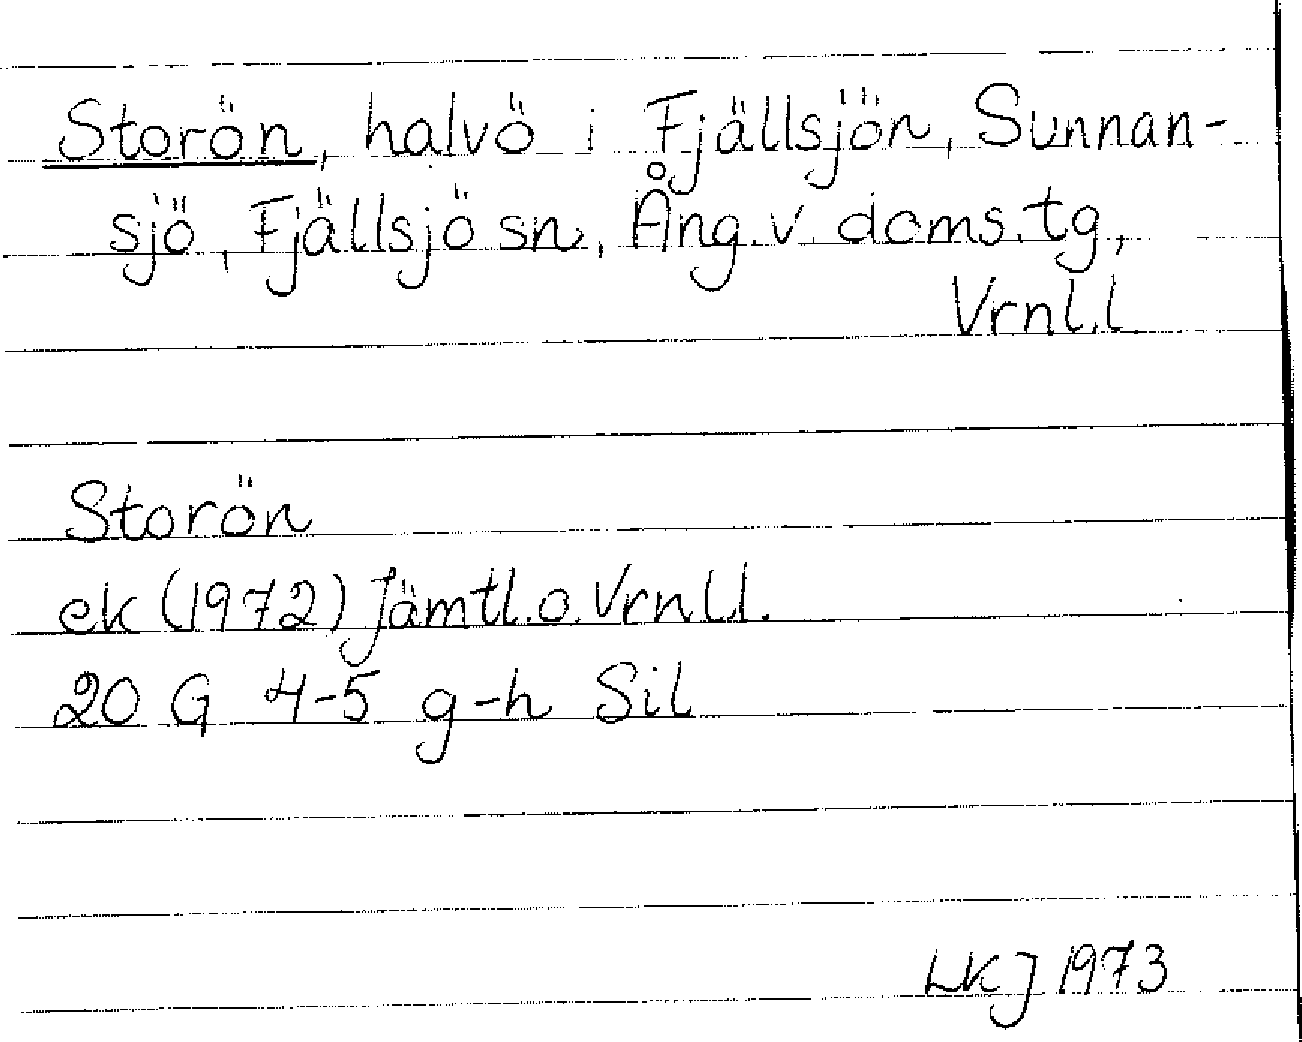 Storön, halvö i Fjällsjön, Sunnan-
sjö, Fjällsjö sn, Ång. v. doms. tg,
Vrnl. l
Storön
ek (1972) Jämtl. o. Vrnl.l.
20 G 4-5 g-h Sil
LKJ 1973